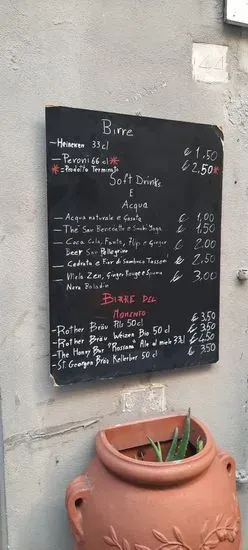 44
Birre
- Heineken 33 cl € 1,50
- Peroni 66 cl * € 2,50 *
* = Prodotto Terminato
Soft Drinks
E
Acqua
- Acqua naturale e Gasata € 1,00
- The San Benedetto e Succhi Yoga € 1,50
- Coca Cola, Fanta, e Ginger € 2,00
Beer San Pellegrino
- Cedrata e Fior di Sambuco Tassoni € 2,50
- Viola Zen, Ginger Rouge e Spuma € 3,00
Nera Baladin
Birre del
Momento
- Rother Bräu Pils 50 cl € 3,50
- Rother Bräu Weizen Bio 50 cl € 3,50
- The Honey Bar "Rossana" Ale al miele 33cl € 4,50
- St. Georgen Bräu Kellerbier 50 cl € 3,50